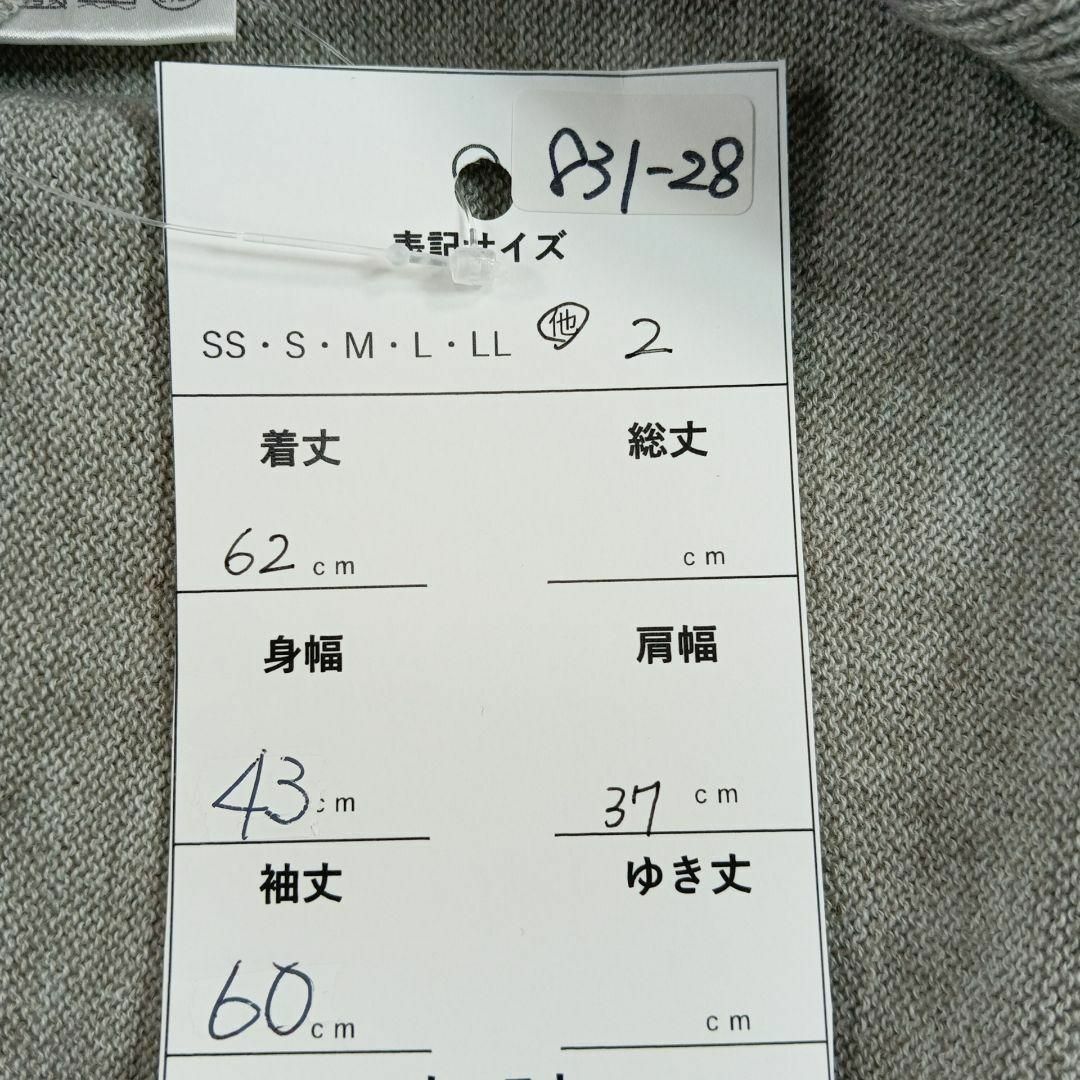 831-28
表記サイズ
SS・S・M・L・LL 他 2
着丈 総丈
62 cm cm
身幅 肩幅
43 cm 37 cm
袖丈 ゆき丈
60 cm cm